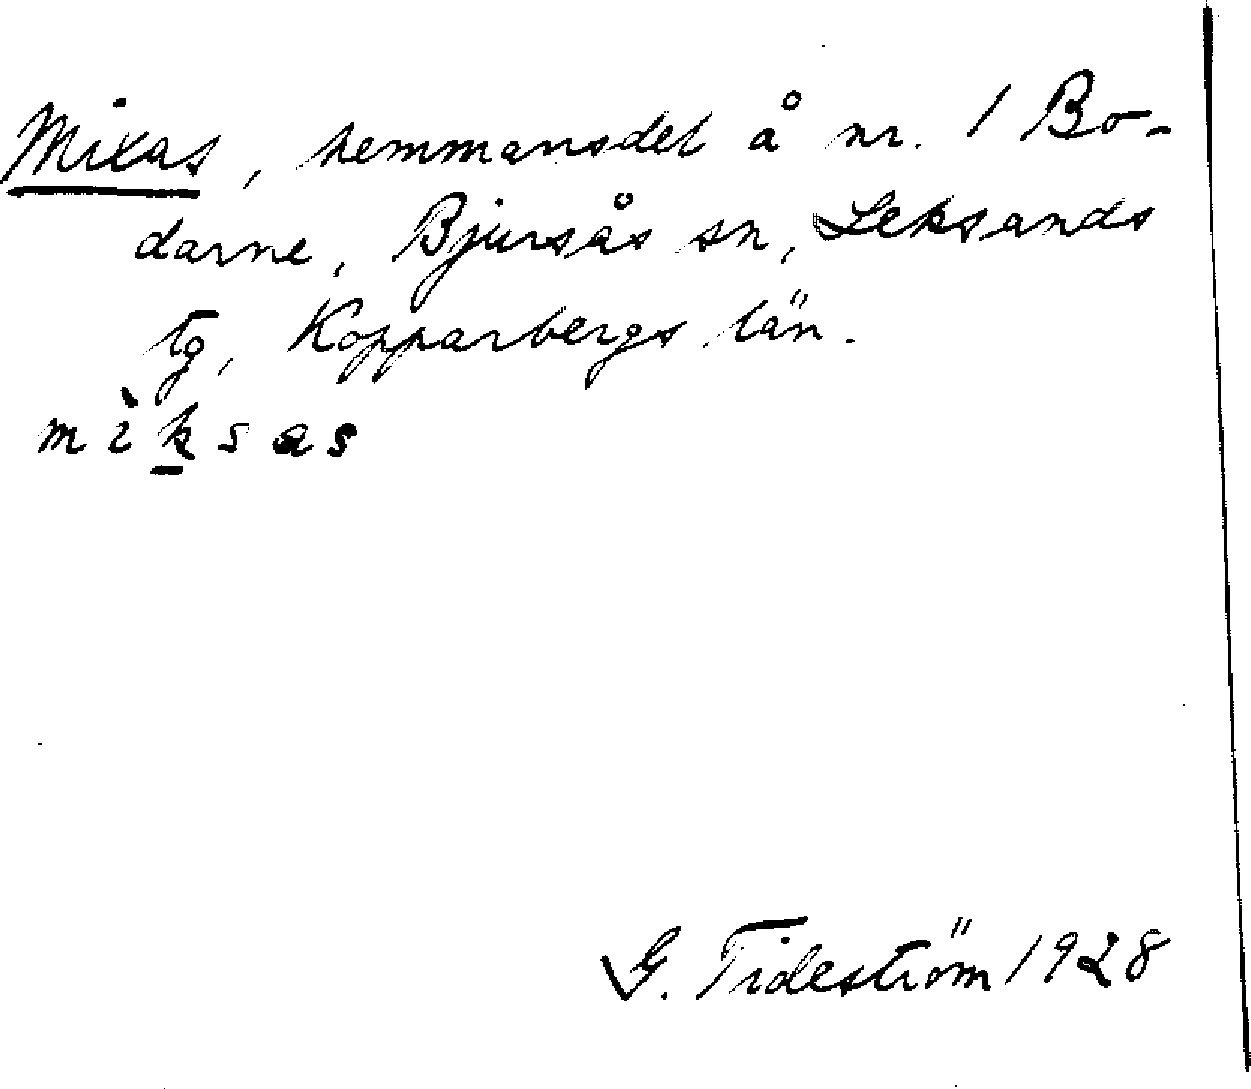 Mixas, hemmansdel å nr. 1 Bo-
darne, Bjursås sn, Leksands
tg, Kopparbergs län.
mìksas
G. Tideström 1928